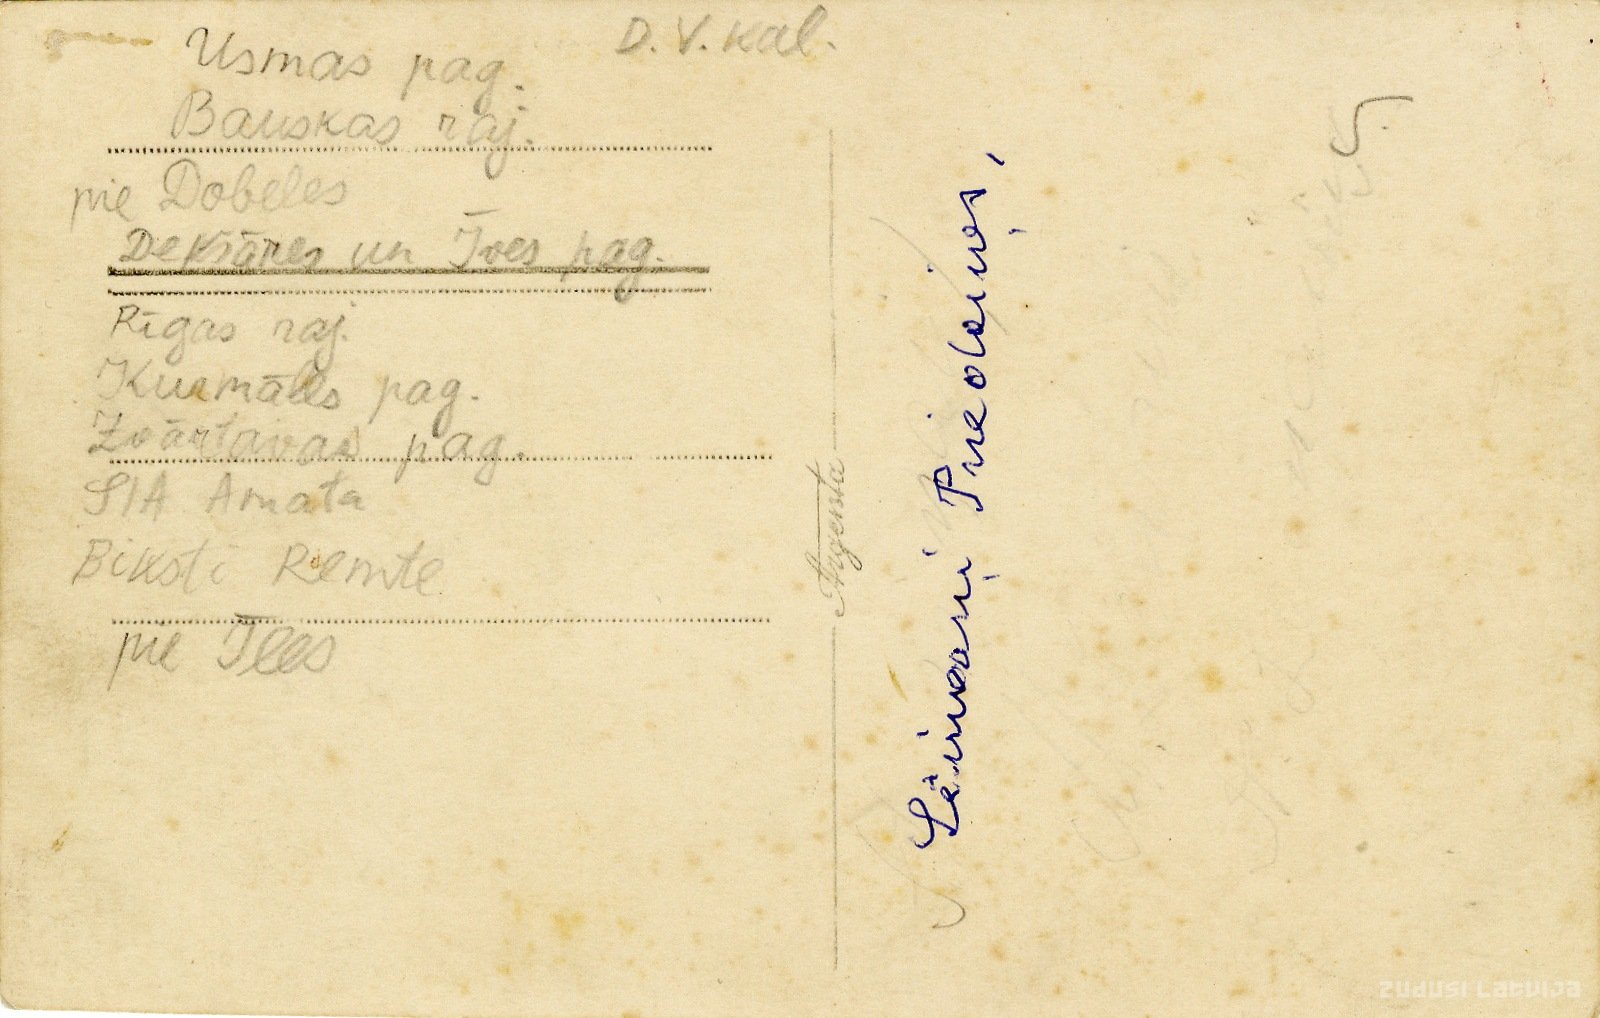 D. V. kal.
Usmas pag.
Bauskas raj.
pie Dobeles
un Īves pag.
Rīgas raj.
Kurmāles pag.
Zvārtavas pag.
SIA Amata
Biksti Remte
pie Īles
Argenta
Priedaiņos,
5.
Zudusi Latvija